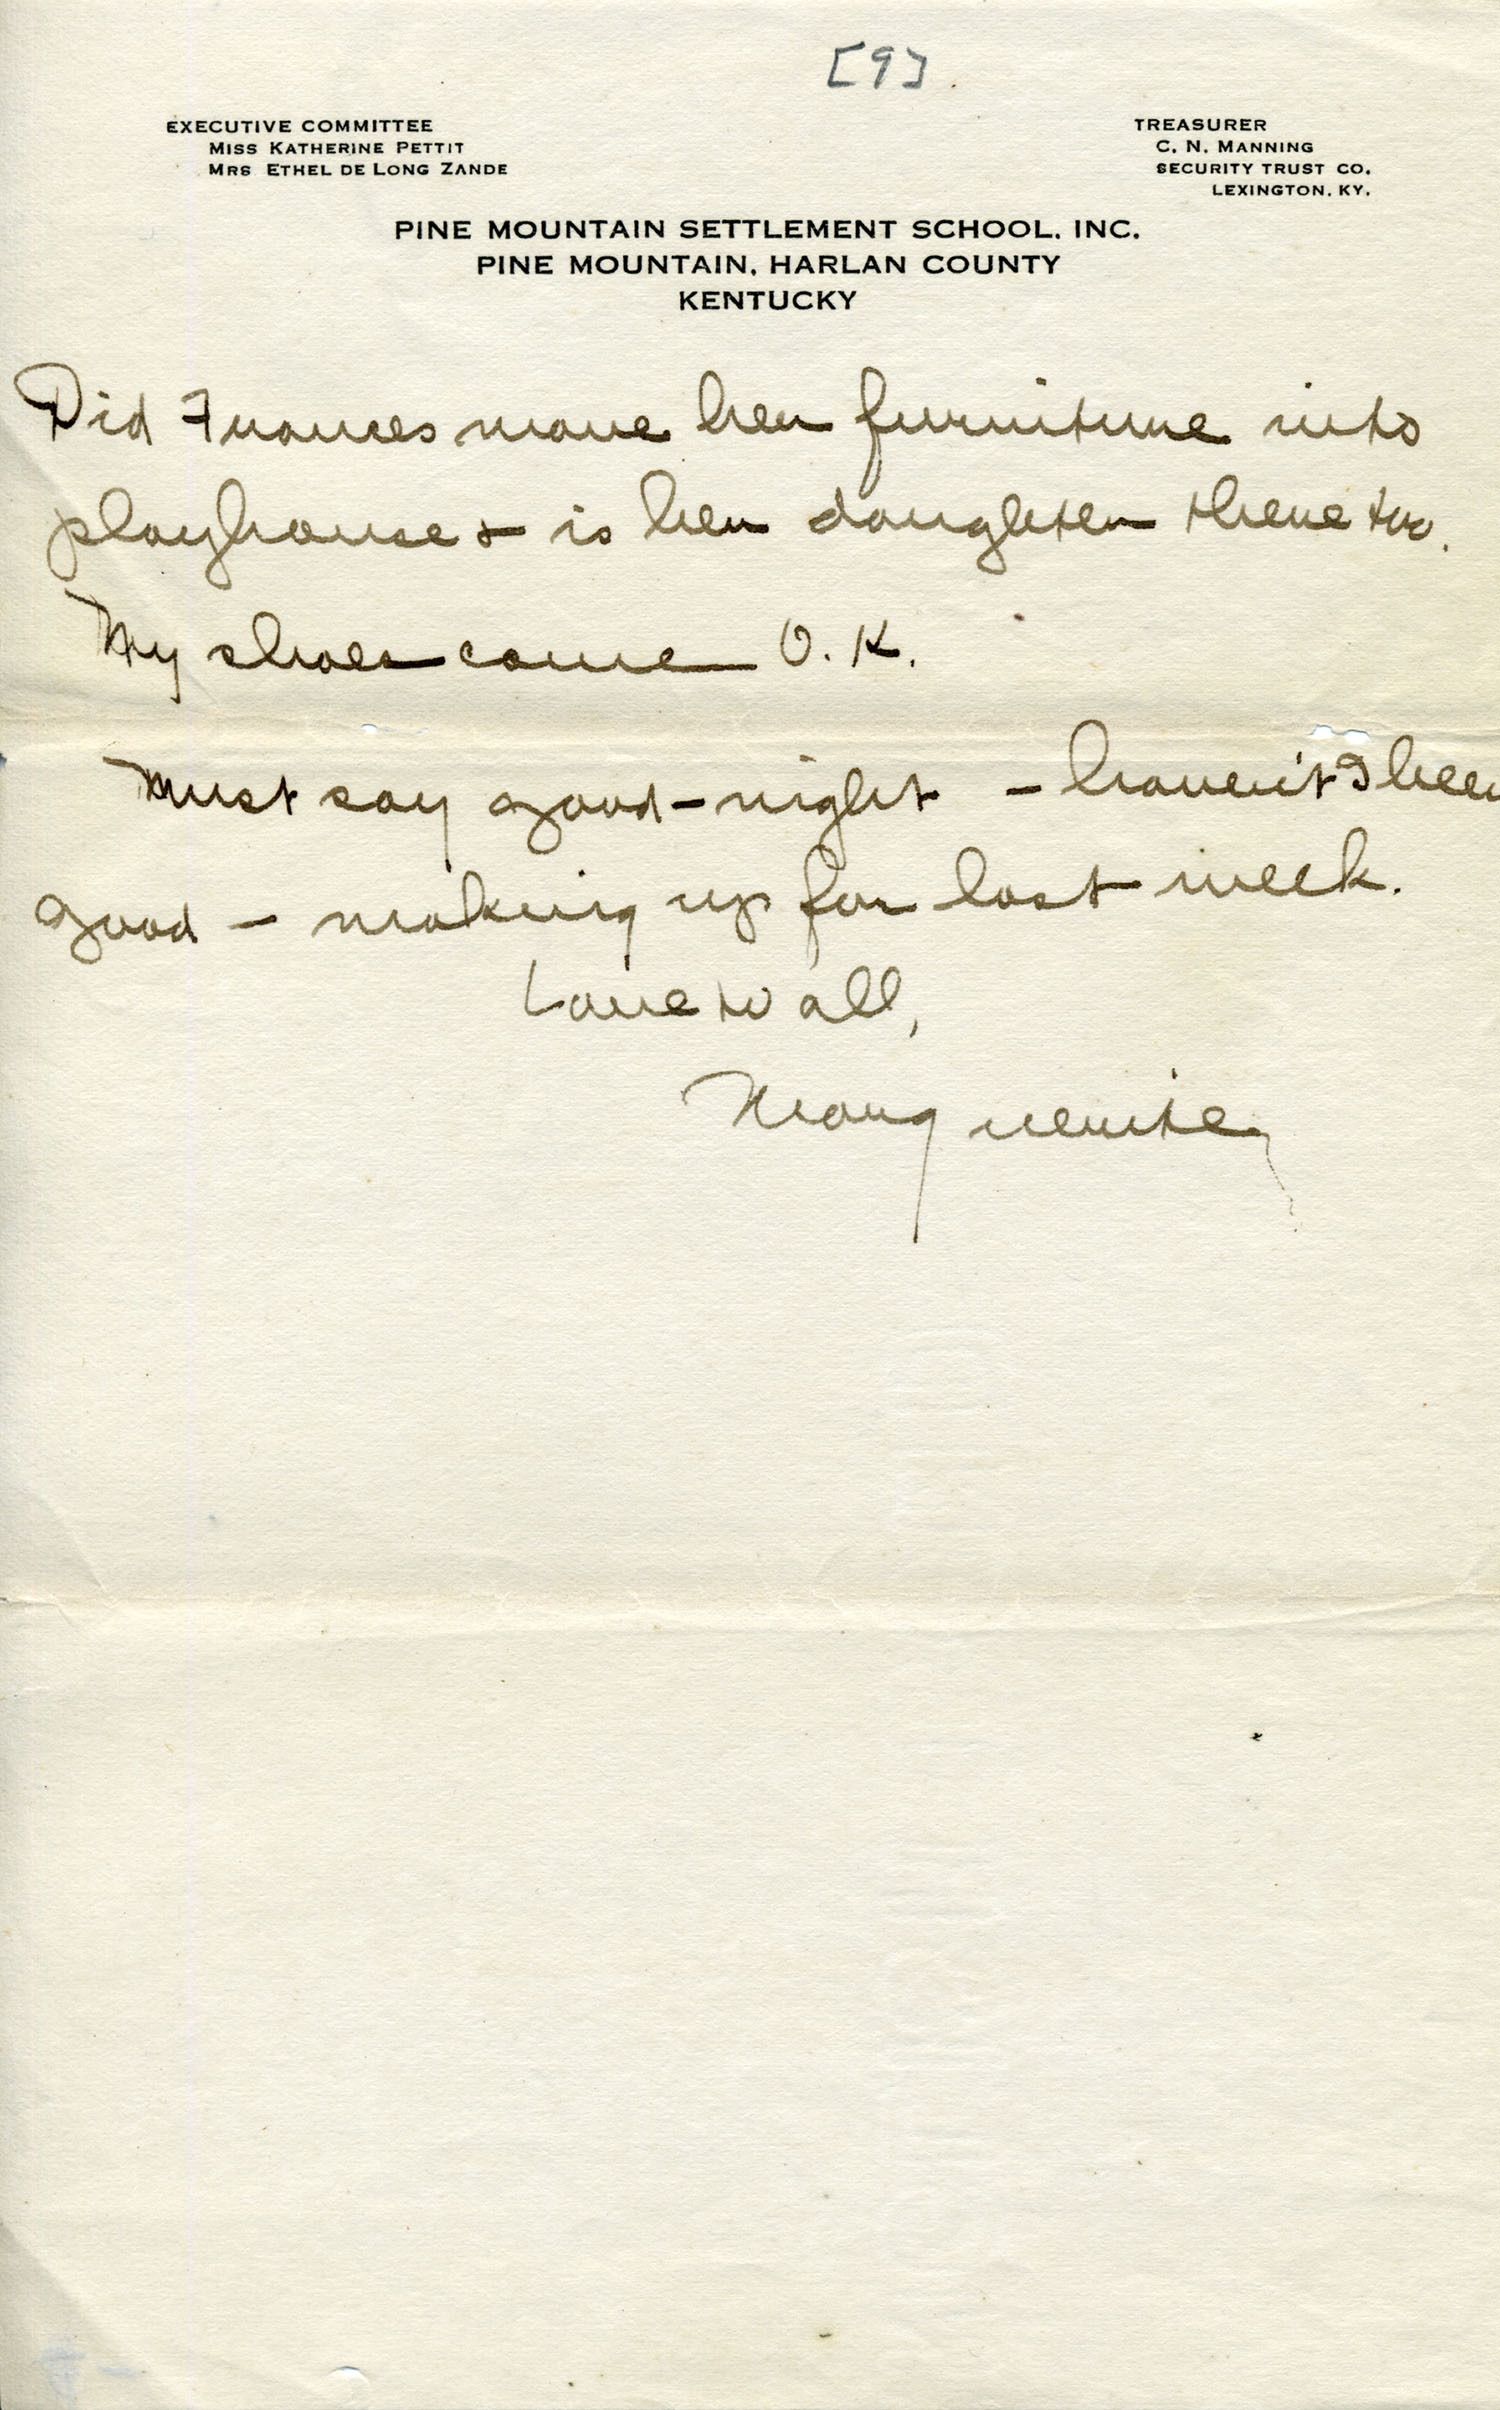 [9]
EXECUTIVE COMMITTEE
MISS KATHERINE PETTIT
MRS ETHEL DE LONG ZANDE
TREASURER
C. N. MANNING
SECURITY TRUST CO.
LEXINGTON, KY.
PINE MOUNTAIN SETTLEMENT SCHOOL, INC.
PINE MOUNTAIN, HARLAN COUNTY
KENTUCKY
Did Frances move her furniture into
playhouse & is her daughter there too.
My shoes came O.K.
Must say good-night - haven't I been
good - making up for last week.
Love to all,
Marguerite